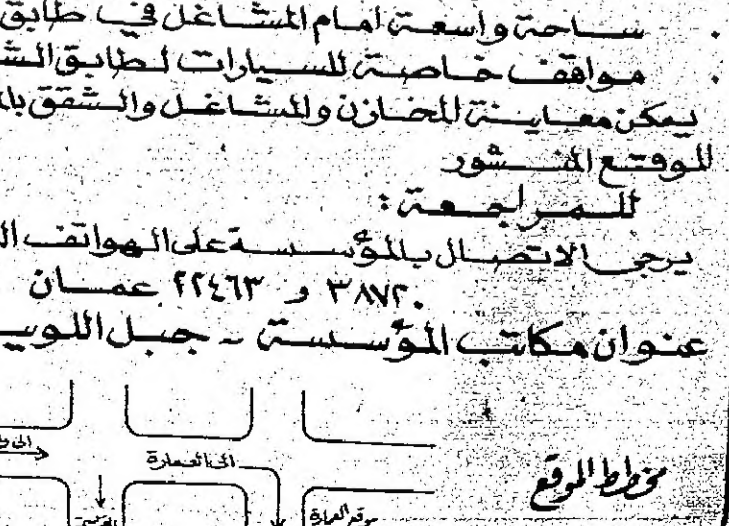 . ساحة واسعة امام المشاغل في طابق
. مواقف خاصة للسيارات لطابق
يمكن معاينة المخازن والمشاغل والشقق
للموقع المنشور
للمراجعة :
يرجى الاتصال بالمؤسسة على الهواتف
٣٨٧٢٠ و ٢٢٤٦٣ عمان
عنوان مكاتب المؤسسة - جبل
مخطط الموقع
الى العمارة
موقع العمارة